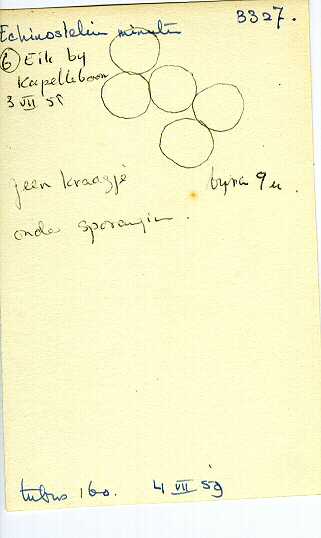 Echinostelium minutum 3327.
6 Eik by
Kapelleboom
3 VII 59
geen kraagje bijna 9 u.
onder sporangium.
tubus 160. 4 VII 59